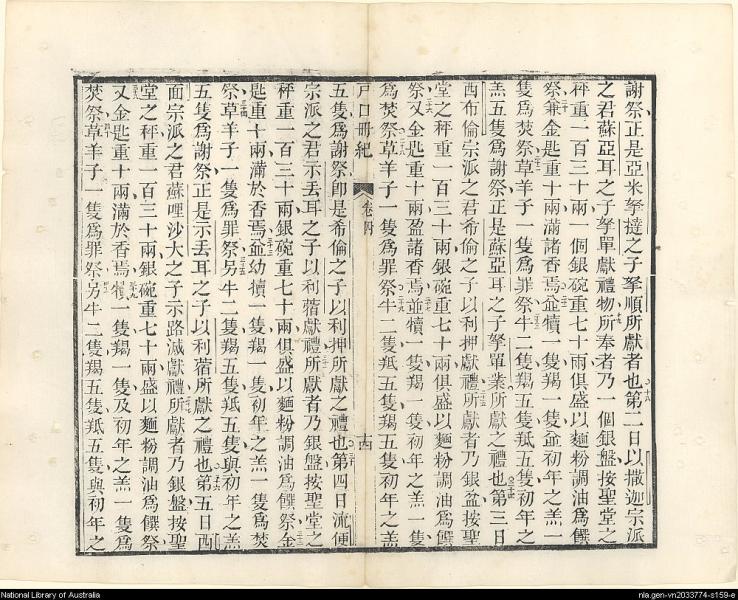 謝祭正是亞米拏撻之子拏順所獻者也第二日以撒迦宗派
之君蘇亞耳之子拏單獻禮物所奉者乃一個銀盤按聖堂之
秤重一百三十兩一個銀碗重七十兩俱盛以麵粉調油為饌
祭兼金匙重十兩滿諸香焉並犢一隻羯一隻爺初年之羔一
隻為焚祭草羊子一隻為罪祭牛二隻羯五隻羝五隻初年之
羔五隻為謝祭正是蘇亞耳之子拏單業所獻之禮也第三日
西布倫宗派之君希倫之子以利押獻禮所獻者乃銀盆按聖
堂之秤重一百三十兩銀碗重七十兩盛以麵粉調油為饌
祭又金匙重十兩盈諸香焉並犢一隻羯一隻初年之羔一隻
為焚祭草羊子一隻為罪祭牛二隻羝五隻羯五隻初年之羔
戶口冊紀 卷四 十四
五隻為謝祭即是希倫之子以利押所獻之禮也第四日流便
宗派之君示丟耳之子以利蓿獻禮所獻者乃銀盤按聖堂之
秤重一百三十兩銀碗重七十兩俱盛以麵粉調油為饌祭金
匙重十兩滿於香焉並幼犢一隻羯一隻初年之羔一隻為焚
祭草羊子一隻為罪祭另牛二隻羯五隻羝五隻與初年之羔
五隻為謝祭正是示丟耳之子以利蓿所獻之禮也第五日西
面宗派之君蘇哩沙大之子示路滅獻禮所獻者乃銀盤按聖
堂之秤重一百三十兩銀碗重七十兩盛以麵粉調油為饌祭
又金匙重十兩滿於香焉犢一隻羯一隻及初年之羔一隻為
焚祭草羊子一隻為罪祭另牛二隻羯五隻羝五隻與初年之
National Library of Australia
nla.gen-vn2033774-s159-e